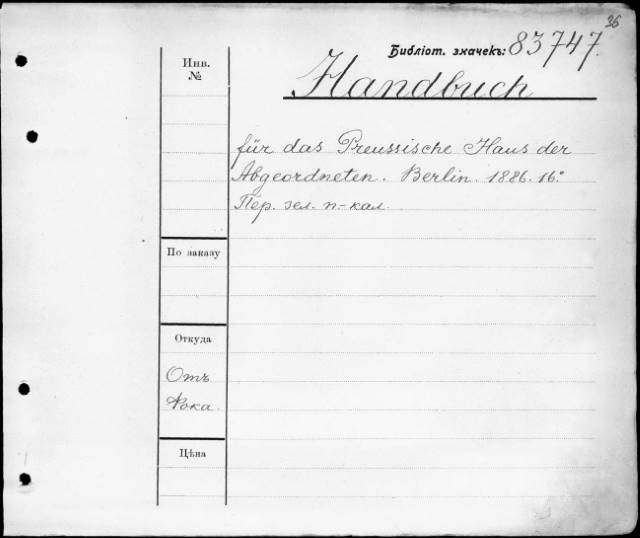 36
Библіот. значекъ: 83747.
Инв.
№
Handbuch
für das Preussische Haus der
Abgeordneten. Berlin. 1886. 16º
Пер. зел. п.-кал.
По заказу
Откуда
Отъ
Рока.
Цѣна